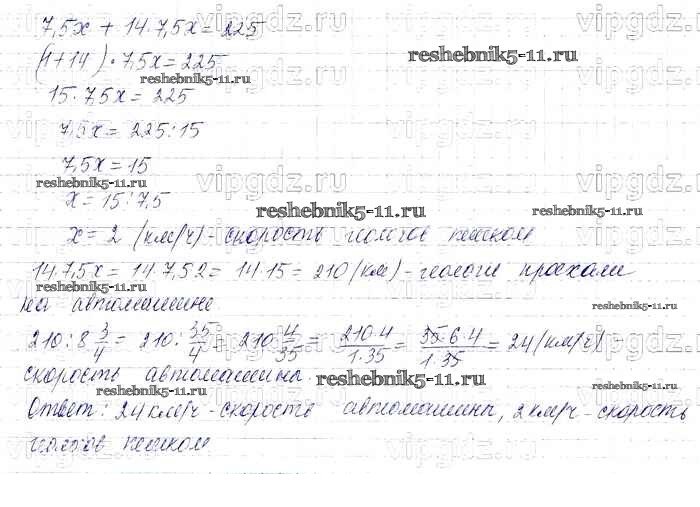 7,5x + 14·7,5x = 225
(1+14)·7,5x = 225
15·7,5x = 225
7,5x = 225:15
7,5x = 15
x = 15:7,5
x = 2 (км/ч) - скорость геологов пешком
14·7,5x = 14·7,5·2 = 14·15 = 210 (км) - геологи проехали
на автомашине
210 : 8 3/4 = 210 : 35/4 = 210·4/35 = 210·4/1·35 = 35·6·4/1·35 = 24 (км/ч) -
скорость автомашины
Ответ: 24 км/ч - скорость автомашины, 2 км/ч - скорость
геологов пешком
vipgdz.ru
reshebnik5-11.ru